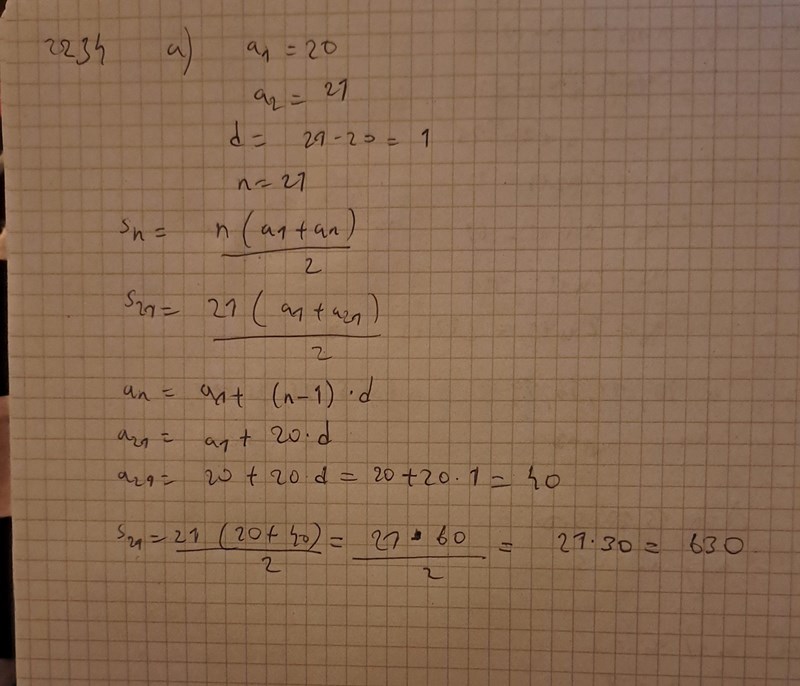 2234 a) a1 = 20
a2 = 21
d = 21 - 20 = 1
n = 21
Sn = n (a1 + an) / 2
S21 = 21 (a1 + a21) / 2
an = a1 + (n-1) · d
a21 = a1 + 20 · d
a21 = 20 + 20 · d = 20 + 20 · 1 = 40
S21 = 21 (20 + 40) / 2 = 21 · 60 / 2 = 21 · 30 = 630